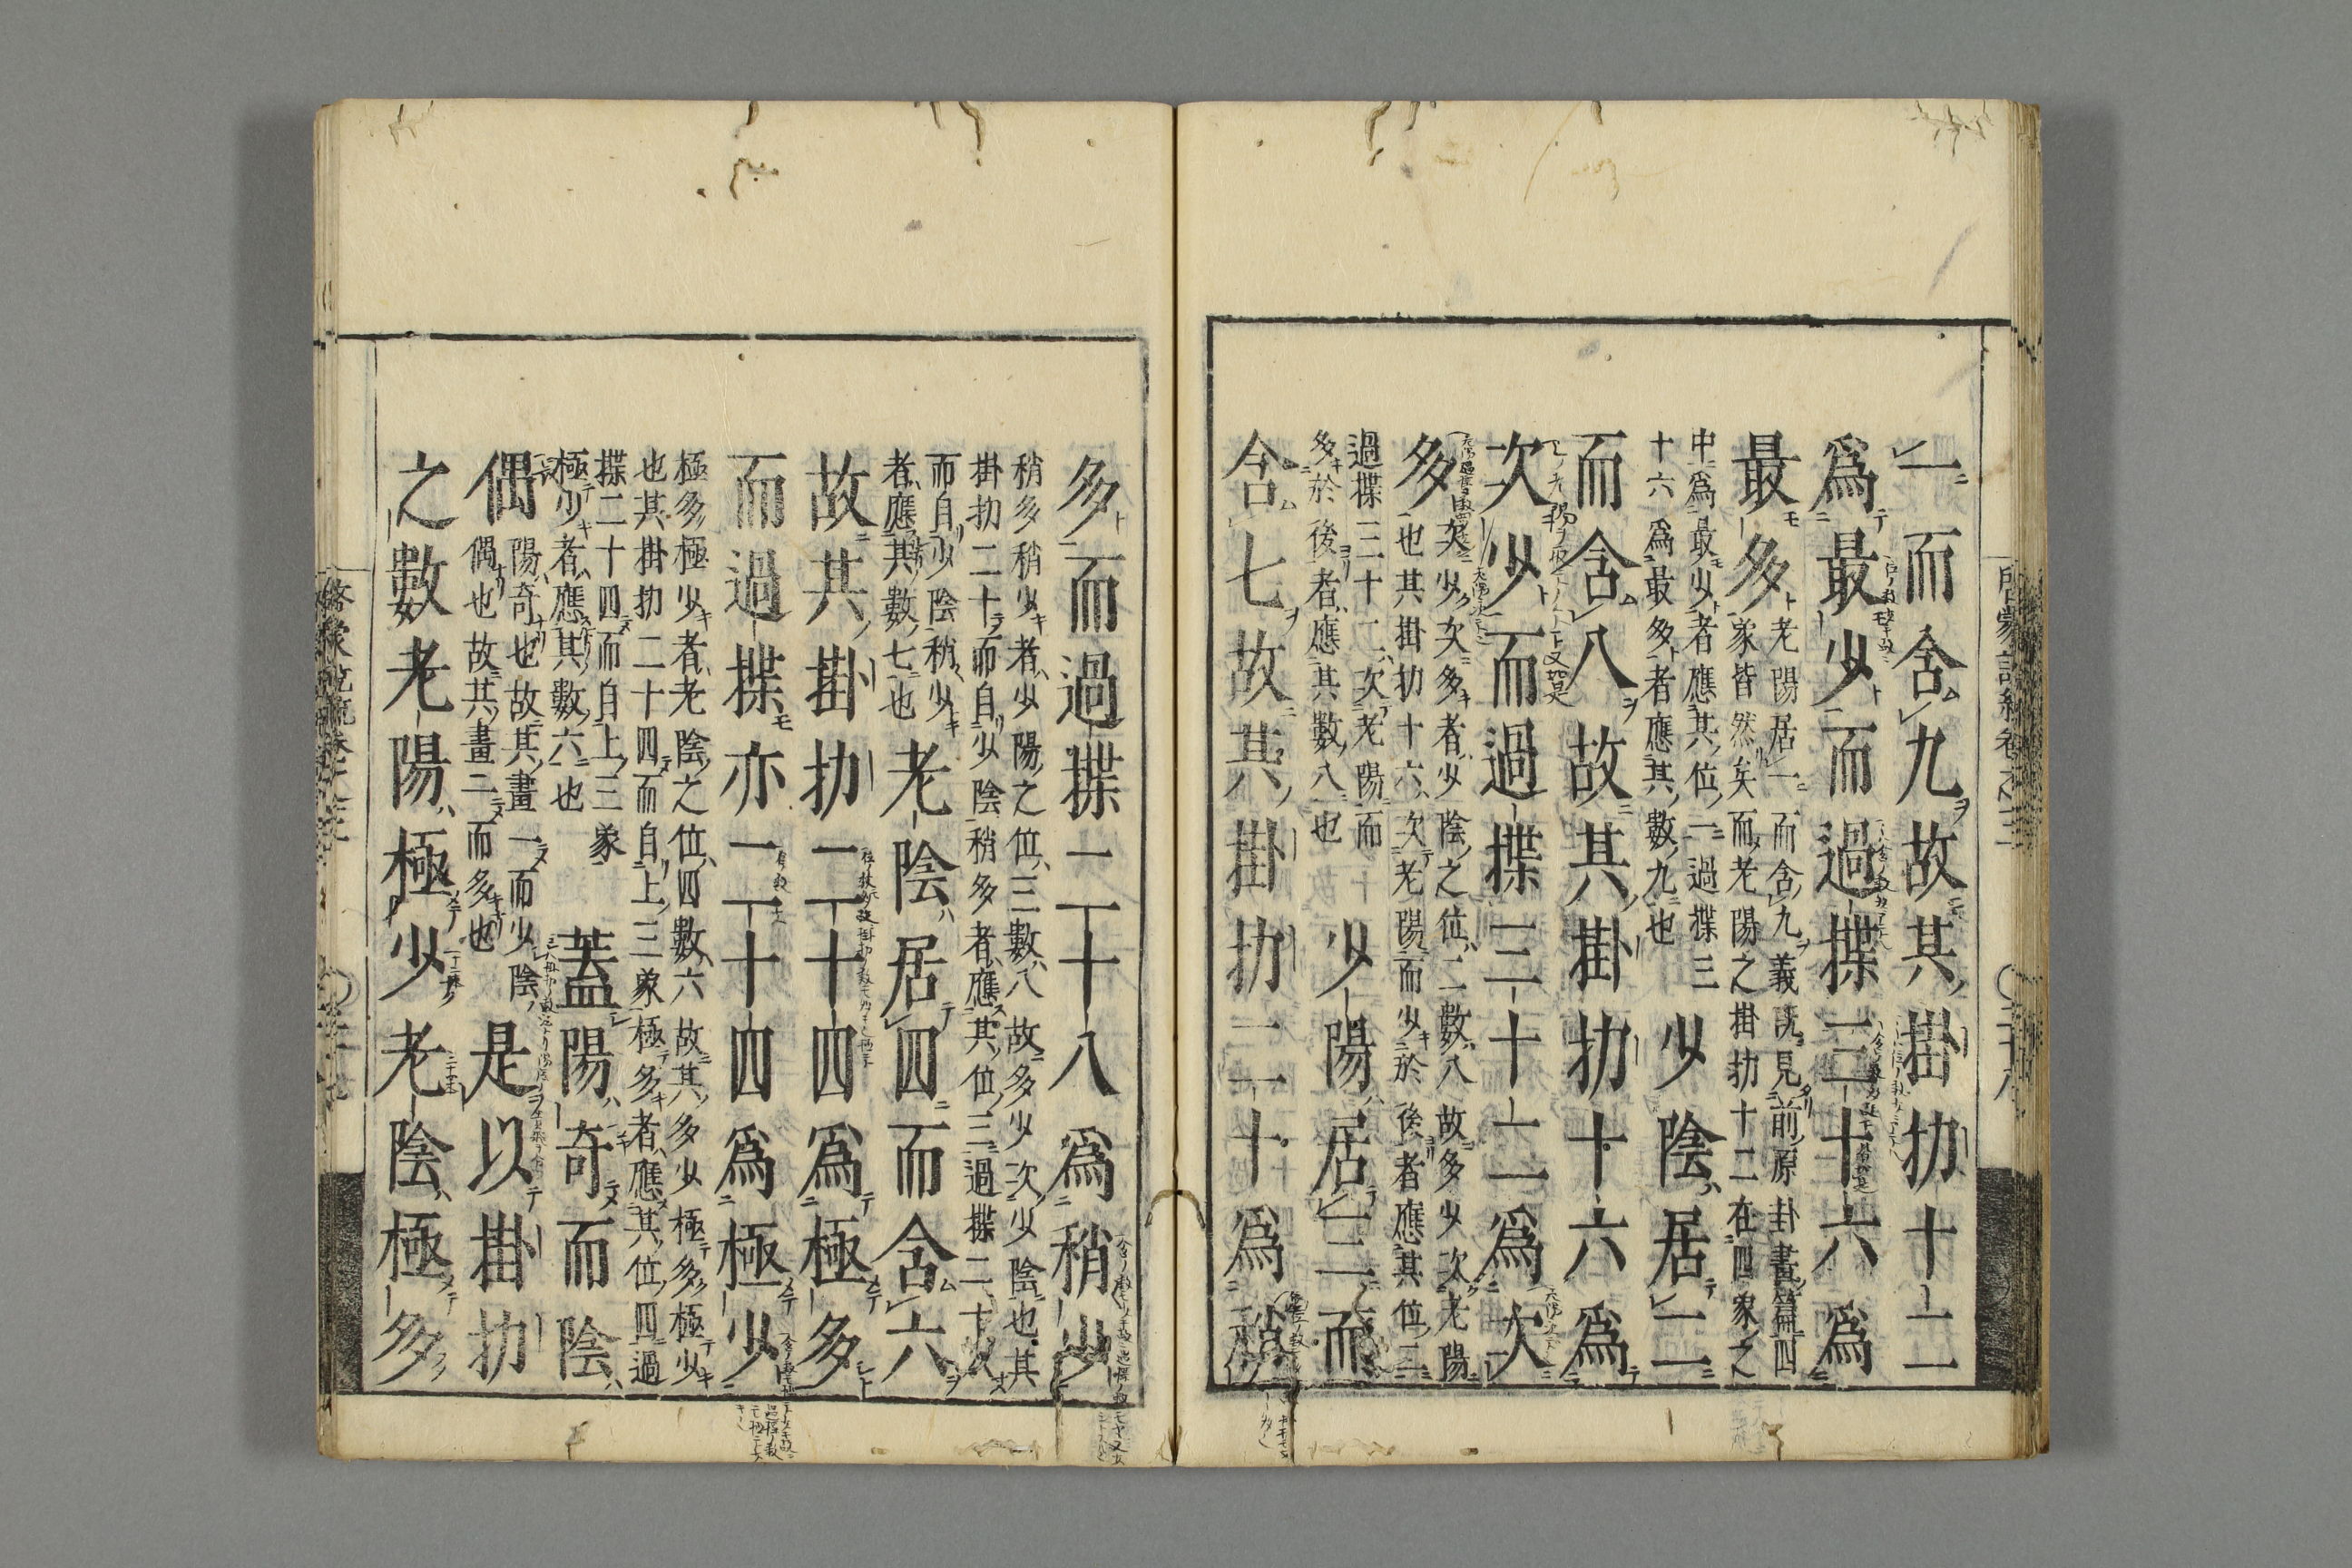 一而含九故其掛扐十二
爲最少而過揲三十六爲
最多
老陽居一而含九義既見前原卦畫篇四
象皆然矣而老陽之掛扐十二在四象之
中爲最少者應其位一過揲三
十六爲最多者應其數九也
少陰居二
而含八故其掛扐十六爲
次少而過揲三十二爲次
多
次少次多者少陰之位二數八故多少次老陽
也其掛扐十六次老陽而少於後者應其位二
過揲三十二次老陽而
多於後者應其數八也
少陽居三而
含七故其掛扐二十爲稍
多而過揲二十八爲稍少
稍多稍少者少陽之位三數八故多少次少陰也其
掛扐二十而自少陰稍多者應其位三過揲二十八
而自少陰稍少
者應其數七也
老陰居四而含六
故其掛扐二十四爲極多
而過揲亦二十四爲極少
極多極少者老陰之位四數六故其多少極多極少
也其掛扐二十四而自上三象極多者應其位四過
揲二十四而自上三象
極少者應其數六也
蓋陽奇而陰
偶
陽奇也故其畫一而少陰
偶也故其畫二而多也
是以掛扐
之數老陽極少老陰極多